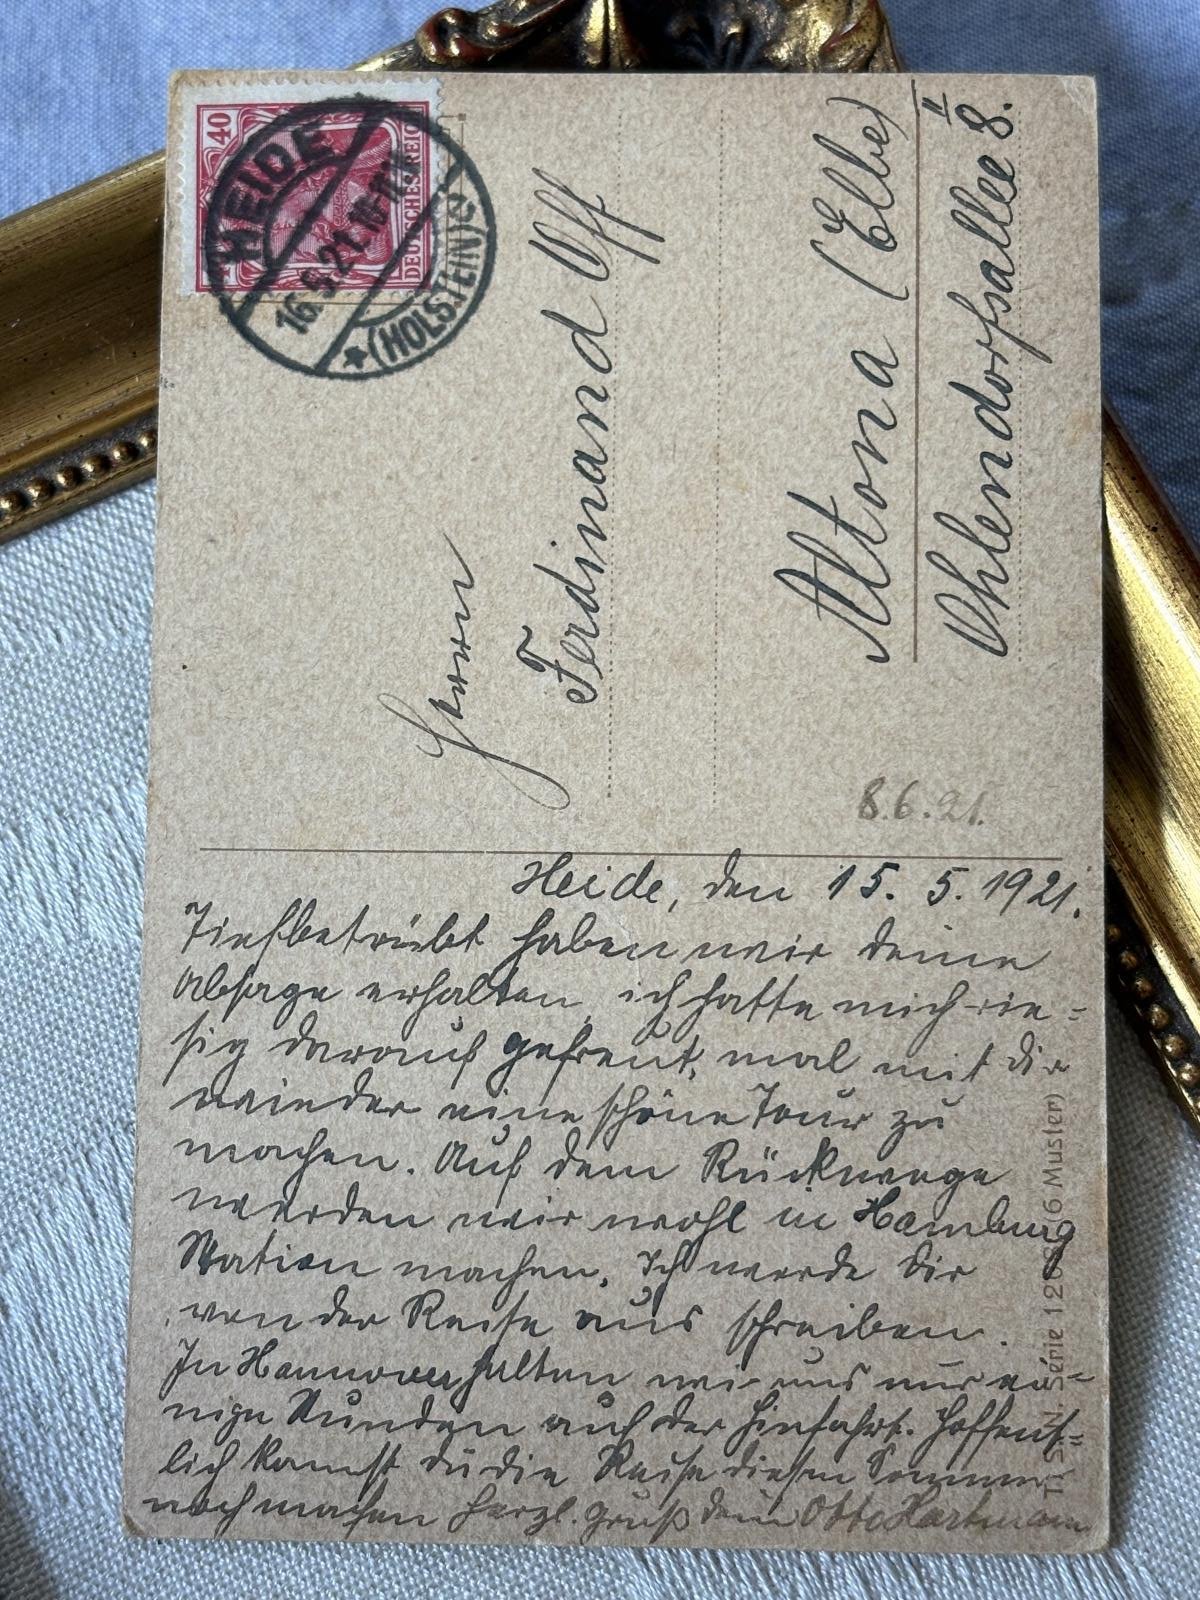 40
DEUTSCHES REICH
HEIDE
16.5.21.
(HOLSTEIN)
Herrn
Ferdinand Off
Altona (Elbe)
Ohlendorfsallee 8. II
8.6.21.
Heide, den 15. 5. 1921.
Tiefbetrübt haben wir deine
Absage erhalten, ich hatte mich rie=
sig darauf gefreut, mal mit dir
wieder eine schöne Tour zu
machen. Auf dem Rückwege
werden wir wohl in Hamburg
Station machen. Ich werde dir
von der Reise aus schreiben.
In Hannover halten wir uns nur ei=
nige Stunden auf der Hinfahrt. Hoffent=
lich kannst du die Reise diesen Sommer
noch machen Herzl. Gruß dein Otto Hartmann
T. S. N. Série 12 (6 Muster)